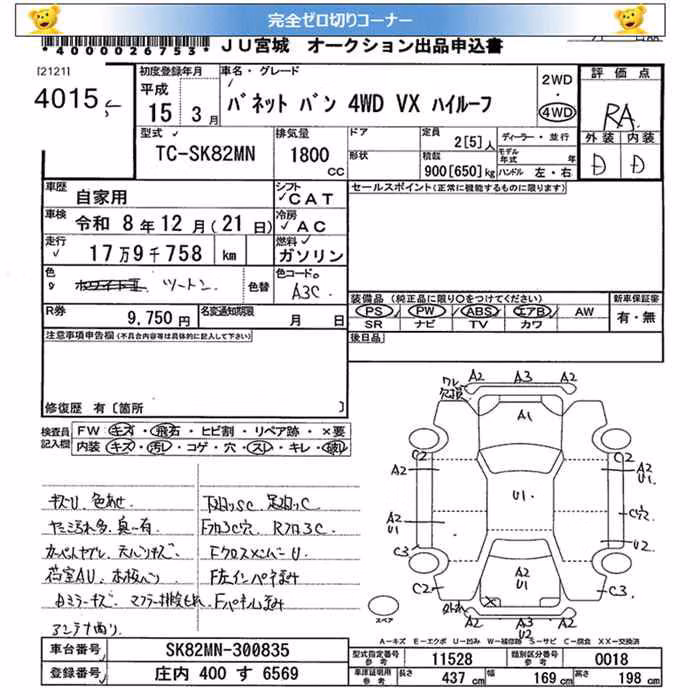 完全ゼロ切りコーナー
*4000026753* JU宮城 オークション出品申込書
[2121]
4015
初度登録年月 平成 15年 3月
車名・グレード バネット バン 4WD VX ハイルーフ
2WD ・ 4WD
評価点 RA
型式 TC-SK82MN
排気量 1800 CC
ドア 形状
定員 2[5]人
積載 900[650]kg
ディーラー・並行
モデル年式 年
ハンドル 左・右
外装 D 内装 D
車歴 自家用
シフト CAT
セールスポイント(正常に機能するものに限ります)
車検 令和 8年 12月 (21日)
冷房 AC
走行 17万9千758 km
燃料 ガソリン
色 ツートン 色替
色コード。 A3C
装備品 (純正品に限り〇をつけてください)
新車保証書
PS PW ABS エアB AW
SR ナビ TV カワ
有・無
R券 9,750円
名変通知期限 月 日
後日品
注意事項申告欄(不具合内容等は具体的に記入して下さい)
修復歴 有 [箇所 ]
検査員記入欄
FW キズ・飛石・ヒビ割・リペア跡・×要
内装 キズ・汚レ・コゲ・穴・スレ・キレ・破レ
キズU 色あせ
下回りSC 足回りC
カーペットヤブレ 天ハリキズ
荷室AU
FクロスメンバーU
A2 A3 A2
A1
C2 C2
A2 A2 U1
U1
C穴
A2 U1 U2
C3
A2 U1
C2 C3
A3 A2 U2
スペア
A-キズ E-エクボ U-凹み W-補修跡 S-サビ C-腐食 XX-交換済
車台番号 SK82MN-300835
登録番号 庄内 400 す 6569
型式指定番号 参考 11528
類別区分番号 参考 0018
車庫証明用 参考 長さ 437 cm 幅 169 cm 高さ 198 cm